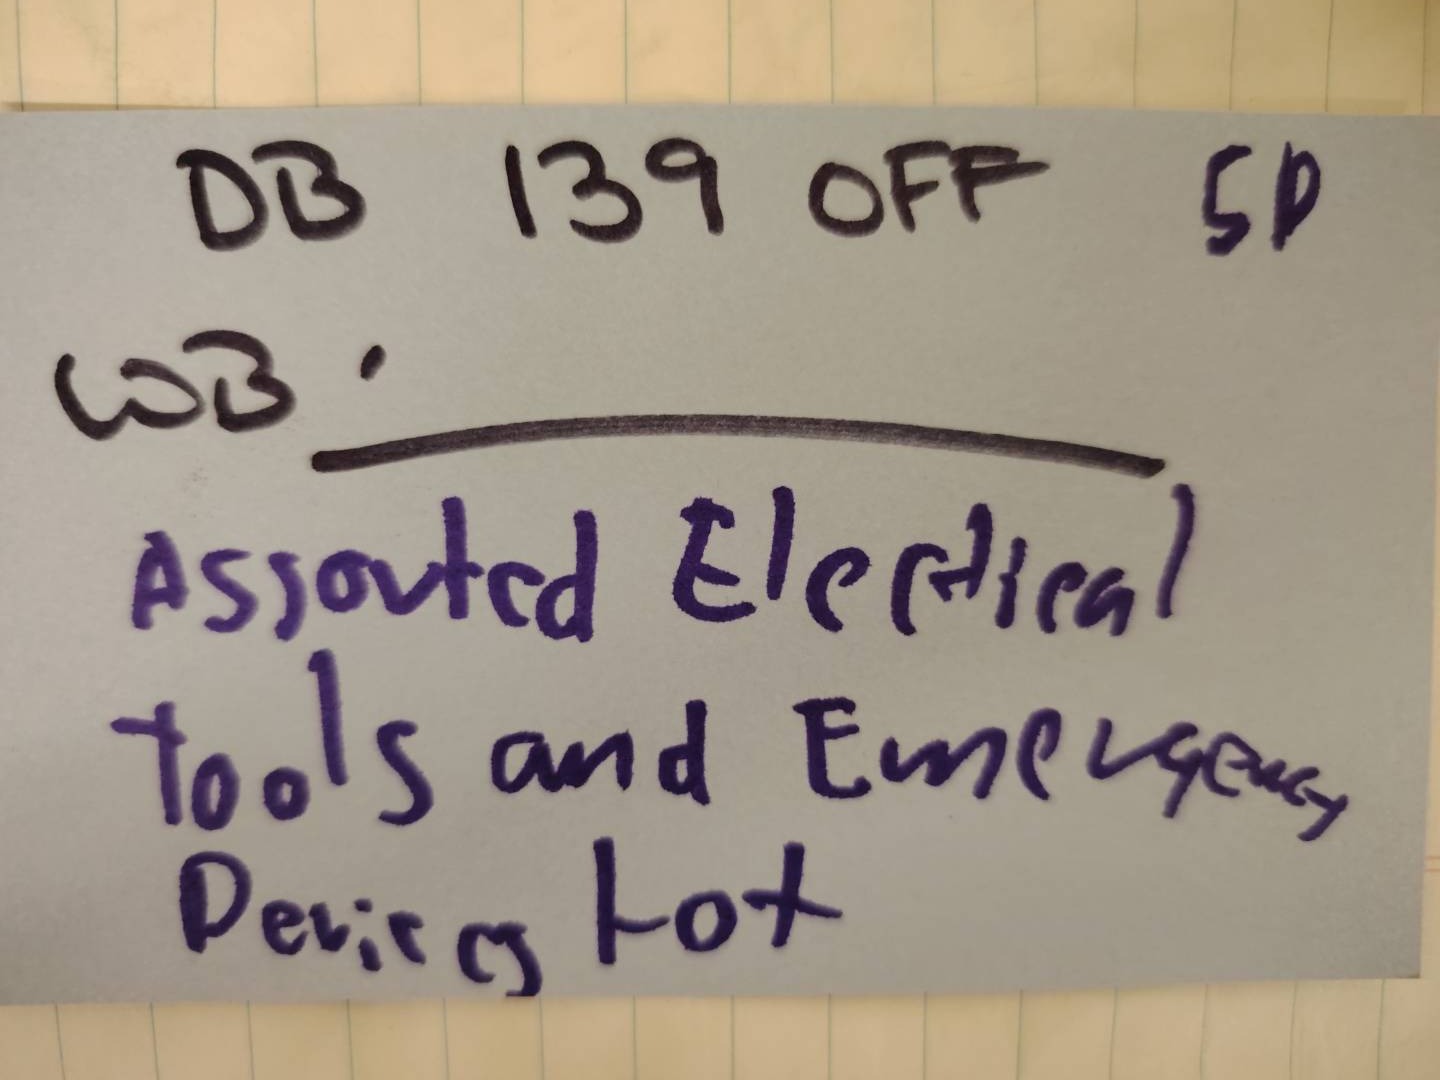 DB 139 OFF SD
WB.
Assorted Electrical
Tools and Emergency
Devices Lot